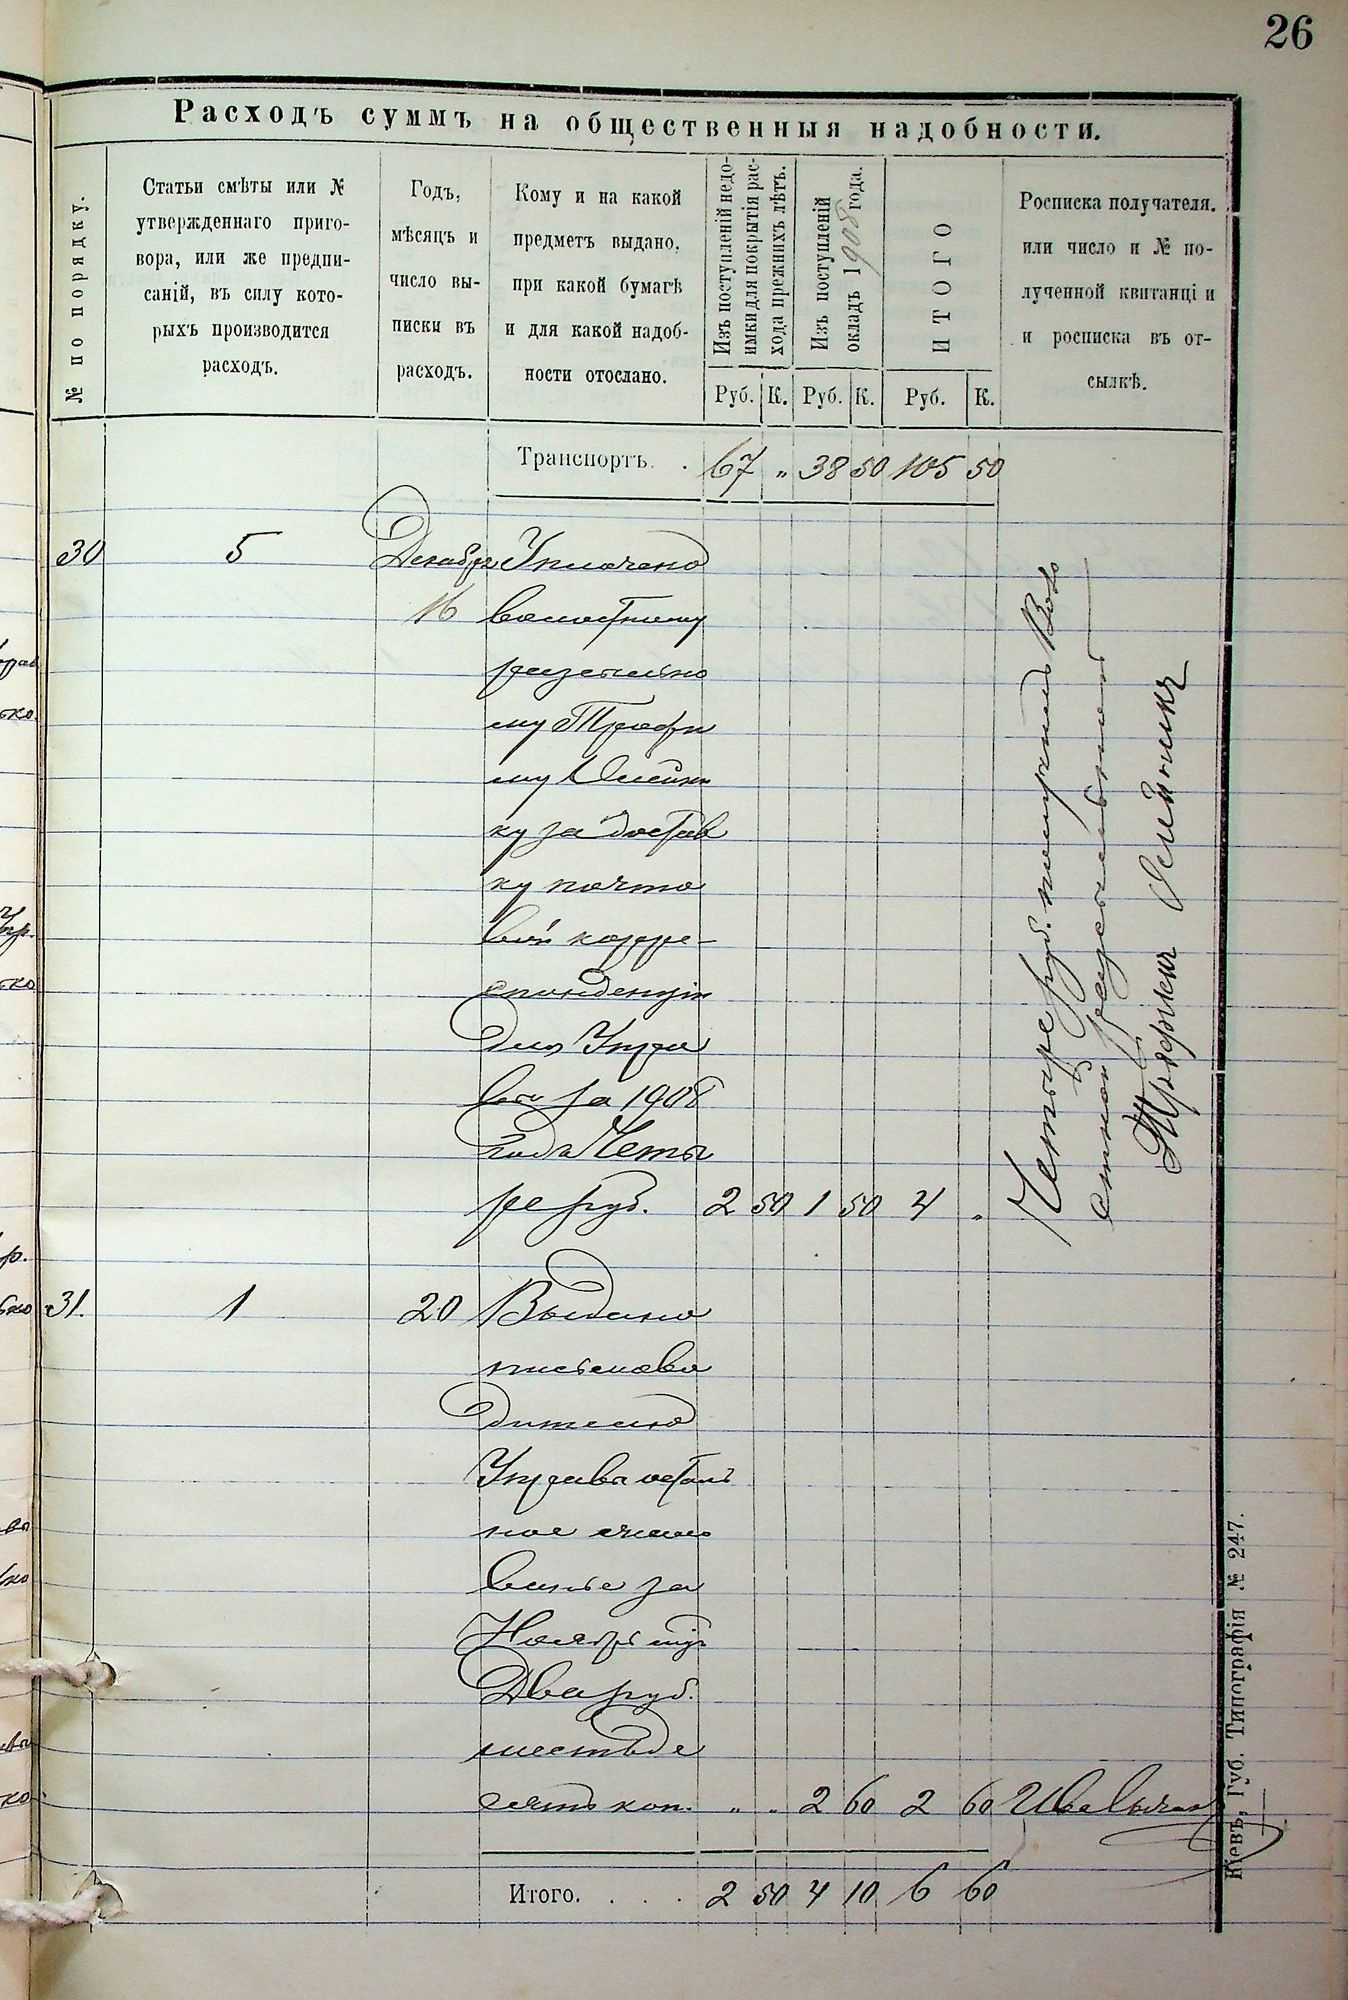 26
Расходъ суммъ на общественныя надобности.
№ по порядку.
Статьи смѣты или №
утвержденнаго приго-
вора, или же предпи-
саній, въ силу кото-
рыхъ производится
расходъ.
Годъ,
мѣсяцъ и
число вы-
писки въ
расходъ.
Кому и на какой
предметъ выдано,
при какой бумагѣ
и для какой надоб-
ности отослано.
Изъ поступленій недо-
имки для покрытія рас-
хода прежнихъ лѣтъ.
Изъ поступленій
окладъ 1908 года.
ИТОГО
Росписка получателя.
или число и № по-
лученной квитанці и
и росписка въ от-
сылкѣ.
Руб. К. Руб. К. Руб. К.
Транспортъ. . 67 „ 38 50 105 50
30 5 Декабря Уплочено
16 волостному
разсыльно
му Трофи
му Олейни
ку за достав
ку почто
вой корре-
спонденціи
для Упра
вы за 1908
годъ Четы
ре руб. 2 50 1 50 4 „
Четыре руб. получилъ Воло
стной разсыльный
Трофим Олейник
31. 1 20 Выдано
письмово
дителю
Управы осталь
ное жало
ванье за
Ноябрь м-цъ
Два руб.
шестьде
сятъ коп. „ „ 2 60 2 60
Итого. . . . 2 50 4 10 6 60
Кіевъ, Губ. Типографія № 247.